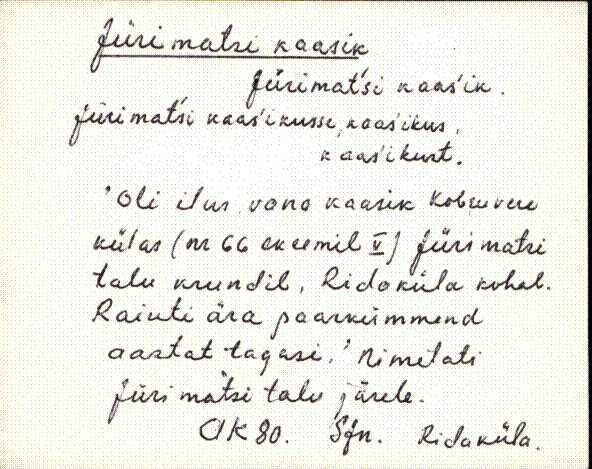 Jüri matsi kaasik
Jürimat'si kaas'ik.
Jüri mat'si kaas'ikusse, kaas'ikus,
kaas'ikust.
'Oli ilus vana kaasik Kobruvere
külas (nr 66 skeemil V) Jüri matsi
talu krundil, Ridaküla kohal.
Raiuti ära paarkümmend
aastat tagasi.' Nimetati
Jüri matsi talu järele.
AK 80. Sjn. Ridaküla.